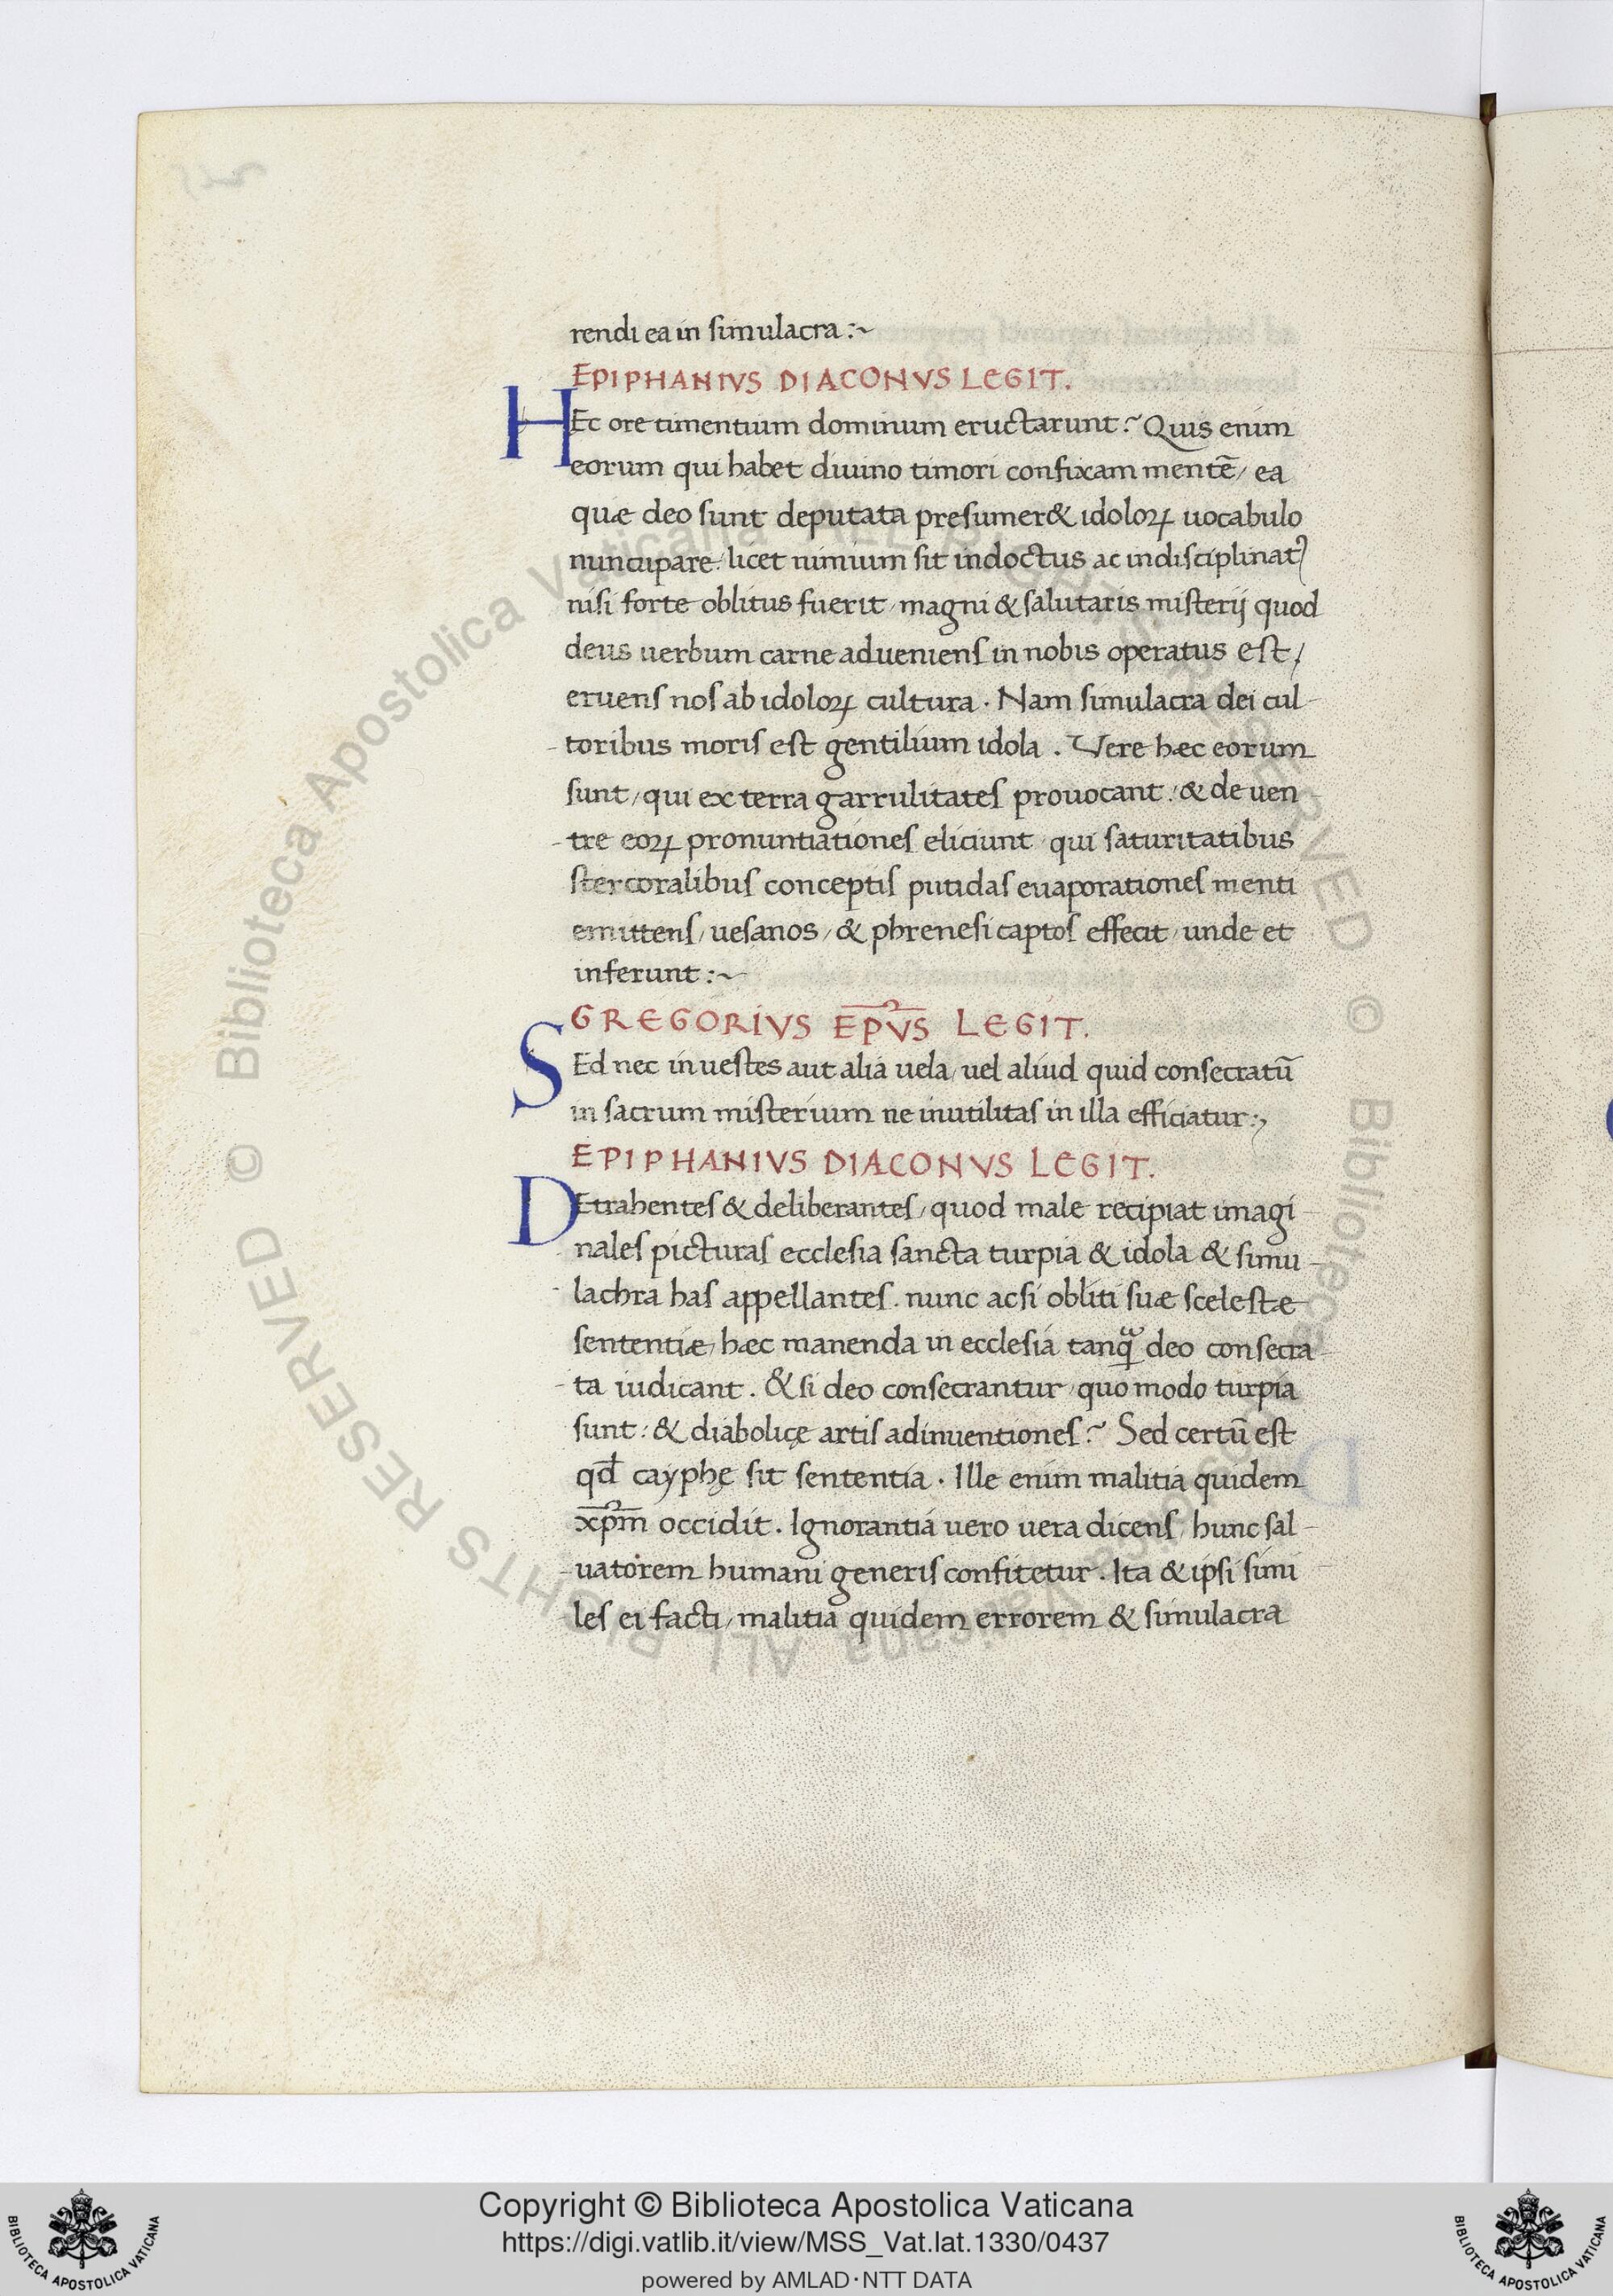 rendi ea in simulacra :~
EPIPHANIVS DIACONVS LEGIT.
HEc ore timentium dominum eructarunt? Quis enim
eorum qui habet diuino timori confixam mentē/ ea
quæ deo sunt deputata presumer& idoloꝝ uocabulo
nuncupare/ licet nimium sit indoctus ac indisciplinatꝰ
nisi forte oblitus fuerit/ magni & salutaris misterij quod
deus uerbum carne adueniens in nobis operatus est/
eruens nos ab idoloꝝ cultura. Nam simulacra dei cul-
-toribus moris est gentilium idola. Vere hæc eorum
sunt/ qui ex terra garrulitates prouocant: & de uen-
-tre eoꝝ pronuntiationes eliciunt/ qui saturitatibus
stercoralibus conceptis putidas euaporationes menti
emittens/ uesanos/ & phrenesi captos effecit/ unde et
inferunt :~
GREGORIVS EP̅V̅S LEGIT.
SEd nec in uestes aut alia uela/ uel aliud quid consecratū
in sacrum misterium ne inutilitas in illa efficiatur:,
EPIPHANIVS DIACONVS LEGIT.
DEtrahentes & deliberantes/ quod male recipiat imagi-
nales picturas ecclesia sancta turpia & idola & simu-
-lachra has appellantes. nunc acsi obliti suæ scelestæ
sententiæ/ hæc manenda in ecclesia tanqᷓ deo consecra-
-ta iudicant. & si deo consecrantur/ quo modo turpia
sunt: & diabolicę artis adinuentiones? Sed certū est
qd̅ cayphę sit sententia. Ille enim malitia quidem
xp̅m occidit. Ignorantia uero uera dicens/ hunc sal-
-uatorem humani generis confitetur. Ita & ipsi simi-
les ei facti/ malitia quidem errorem & simulacra
© Biblioteca Apostolica Vaticana ALL RIGHTS RESERVED © Biblioteca Apostolica Vaticana ALL RIGHTS RESERVED
BIBLIOTECA APOSTOLICA VATICANA
Copyright © Biblioteca Apostolica Vaticana
https://digi.vatlib.it/view/MSS_Vat.lat.1330/0437
powered by AMLAD·NTT DATA
BIBLIOTECA APOSTOLICA VATICANA